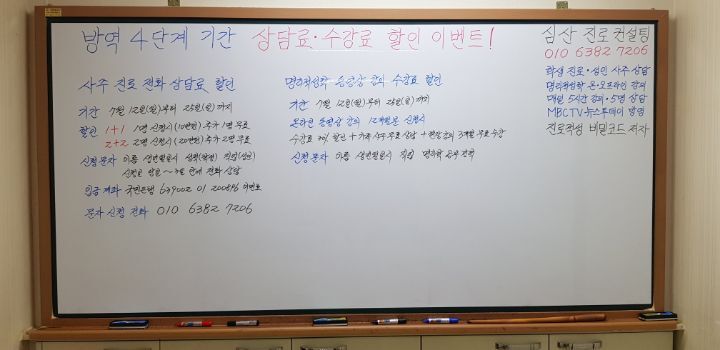 방역 4단계 기간 상담료·수강료 할인 이벤트!
사주 진로 전화 상담료 할인
기간 7월 12일(월)부터 25일(일)까지
할인 1+1 1명 신청시 (10만원) 추가 1명 무료
2+2 2명 신청시 (20만원) 추가 2명 무료
신청 문자 이름 생년월일시 성적(학생) 직업(성인)
신청료 입금 전화 상담
입금 계좌 국민은행 639002 01 200816
문자 신청 전화 010 6382 7206
명리적성학 동영상 강의 수강료 할인
기간 7월 12일(월)부터 25일(일)까지
온라인 동영상 강의 12개월분 신청시
수강료 할인 + 가족 사주 무료 상담 + 현장 강의 3개월 무료 수강
신청 문자 이름 생년월일시 직업 명리학 공부 경력
심산 진로 컨설팅
010 6382 7206
학생 진로·성인 사주 상담
명리적성학 온·오프라인 강의
매일 5시간 강의·5명 상담
MBC TV·뉴스투데이 방영
진로적성 비밀코드 저자